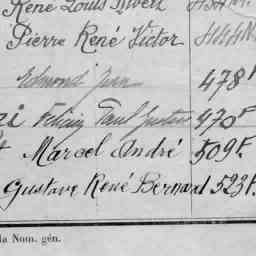 René Louis Albert
Pierre René Victor
Edmond Jean 478F
Félicien Paul Gustave 470F
Marcel André 509F.
Gustave René Bernard 523F.
la Nom. gén.